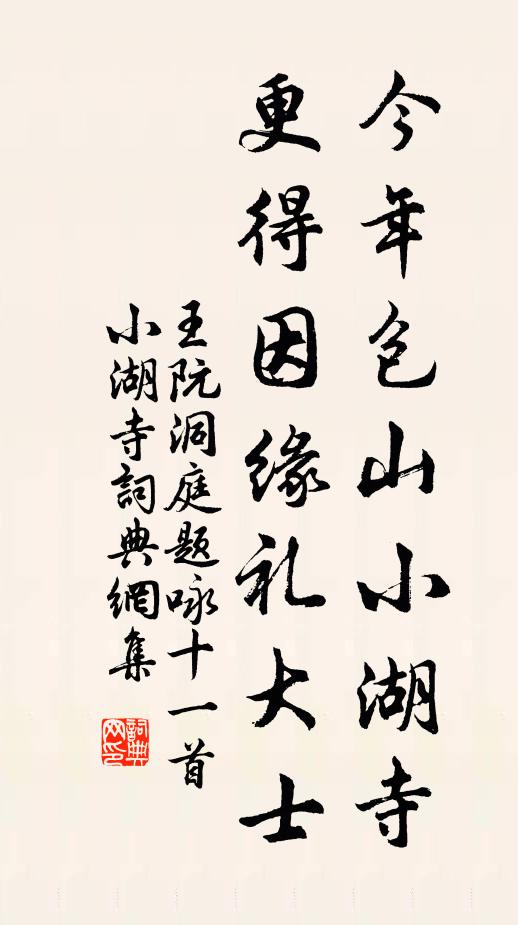 今年包山小湖寺
更得因缘礼大士
王阮洞庭题咏十一首
小湖寺詞典網集
詞典網印